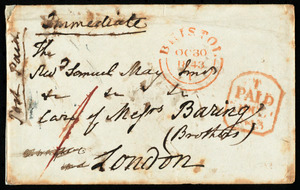 Immediate
Post Paid
BRISTOL
OC 30
1843
The
Revd. Samuel May Junr
& & &
Care of Messrs Baring
(Brothers)
London
PAID